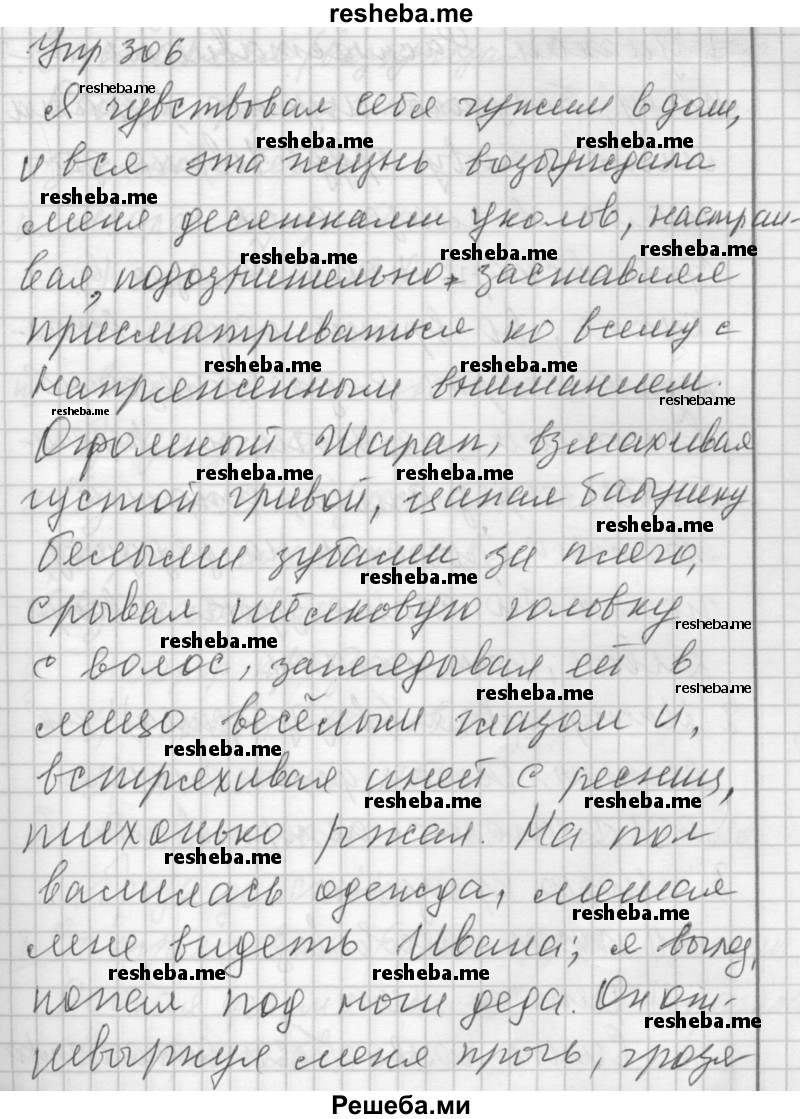 resheba.me
Упр 306
resheba.me
Я чувствовал себя чужим в доме,
resheba.me resheba.me
и вся эта жизнь возбуждала
resheba.me
меня десятками уколов, настраи-
resheba.me resheba.me resheba.me
вая, подозрительно, заставляя
присматриваться ко всему с
resheba.me resheba.me
напряженным вниманием.
resheba.me resheba.me
Огромный Шарап, взмахивая
resheba.me resheba.me
густой гривой, цапал бабушку
resheba.me
белыми зубами за плечо,
resheba.me
срывал шёлковую головку
resheba.me resheba.me
с волос, заглядывая ей в
resheba.me resheba.me
лицо весёлым глазом и,
resheba.me
встряхивая иней с ресниц,
resheba.me resheba.me
тихонько ржал. На пол
resheba.me
валилась одежда, мешая
resheba.me
мне видеть Ивана; я вылез,
resheba.me resheba.me
попал под ноги деда. Он от-
resheba.me
швырнул меня прочь, грозя
Решеба.ми